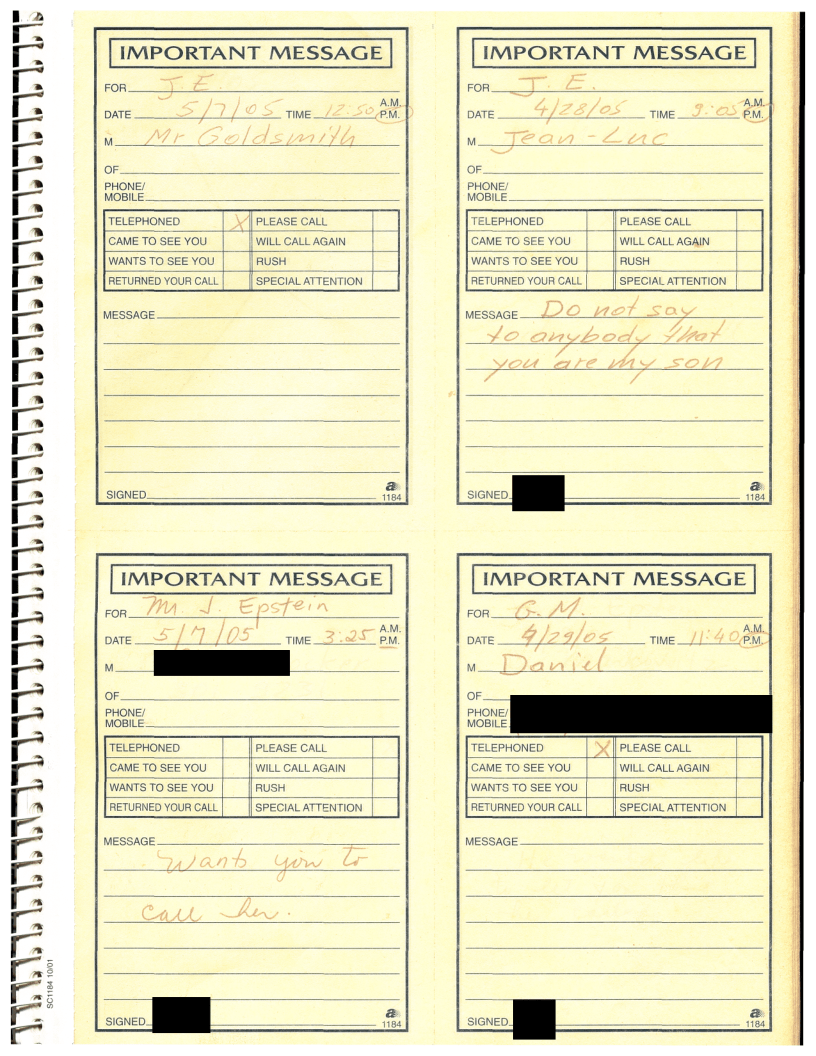 IMPORTANT MESSAGE
FOR J. E.
DATE 5/7/05 TIME 12:50 A.M. P.M.
M Mr Goldsmith
OF
PHONE/
MOBILE
TELEPHONED X PLEASE CALL
CAME TO SEE YOU WILL CALL AGAIN
WANTS TO SEE YOU RUSH
RETURNED YOUR CALL SPECIAL ATTENTION
MESSAGE
SIGNED
a
1184
IMPORTANT MESSAGE
FOR J. E.
DATE 4/28/05 TIME 9:05 A.M. P.M.
M Jean-Luc
OF
PHONE/
MOBILE
TELEPHONED PLEASE CALL
CAME TO SEE YOU WILL CALL AGAIN
WANTS TO SEE YOU RUSH
RETURNED YOUR CALL SPECIAL ATTENTION
MESSAGE Do not say
to anybody that
you are my son
SIGNED
a
1184
IMPORTANT MESSAGE
FOR Mr. J. Epstein
DATE 5/7/05 TIME 3:25 A.M. P.M.
M
OF
PHONE/
MOBILE
TELEPHONED PLEASE CALL
CAME TO SEE YOU WILL CALL AGAIN
WANTS TO SEE YOU RUSH
RETURNED YOUR CALL SPECIAL ATTENTION
MESSAGE
Wants you to
call her.
SIGNED
a
1184
IMPORTANT MESSAGE
FOR G. M.
DATE 4/29/05 TIME 11:40 A.M. P.M.
M Daniel
OF
PHONE/
MOBILE
TELEPHONED X PLEASE CALL
CAME TO SEE YOU WILL CALL AGAIN
WANTS TO SEE YOU RUSH
RETURNED YOUR CALL SPECIAL ATTENTION
MESSAGE
SIGNED
a
1184
SC1184 10/01